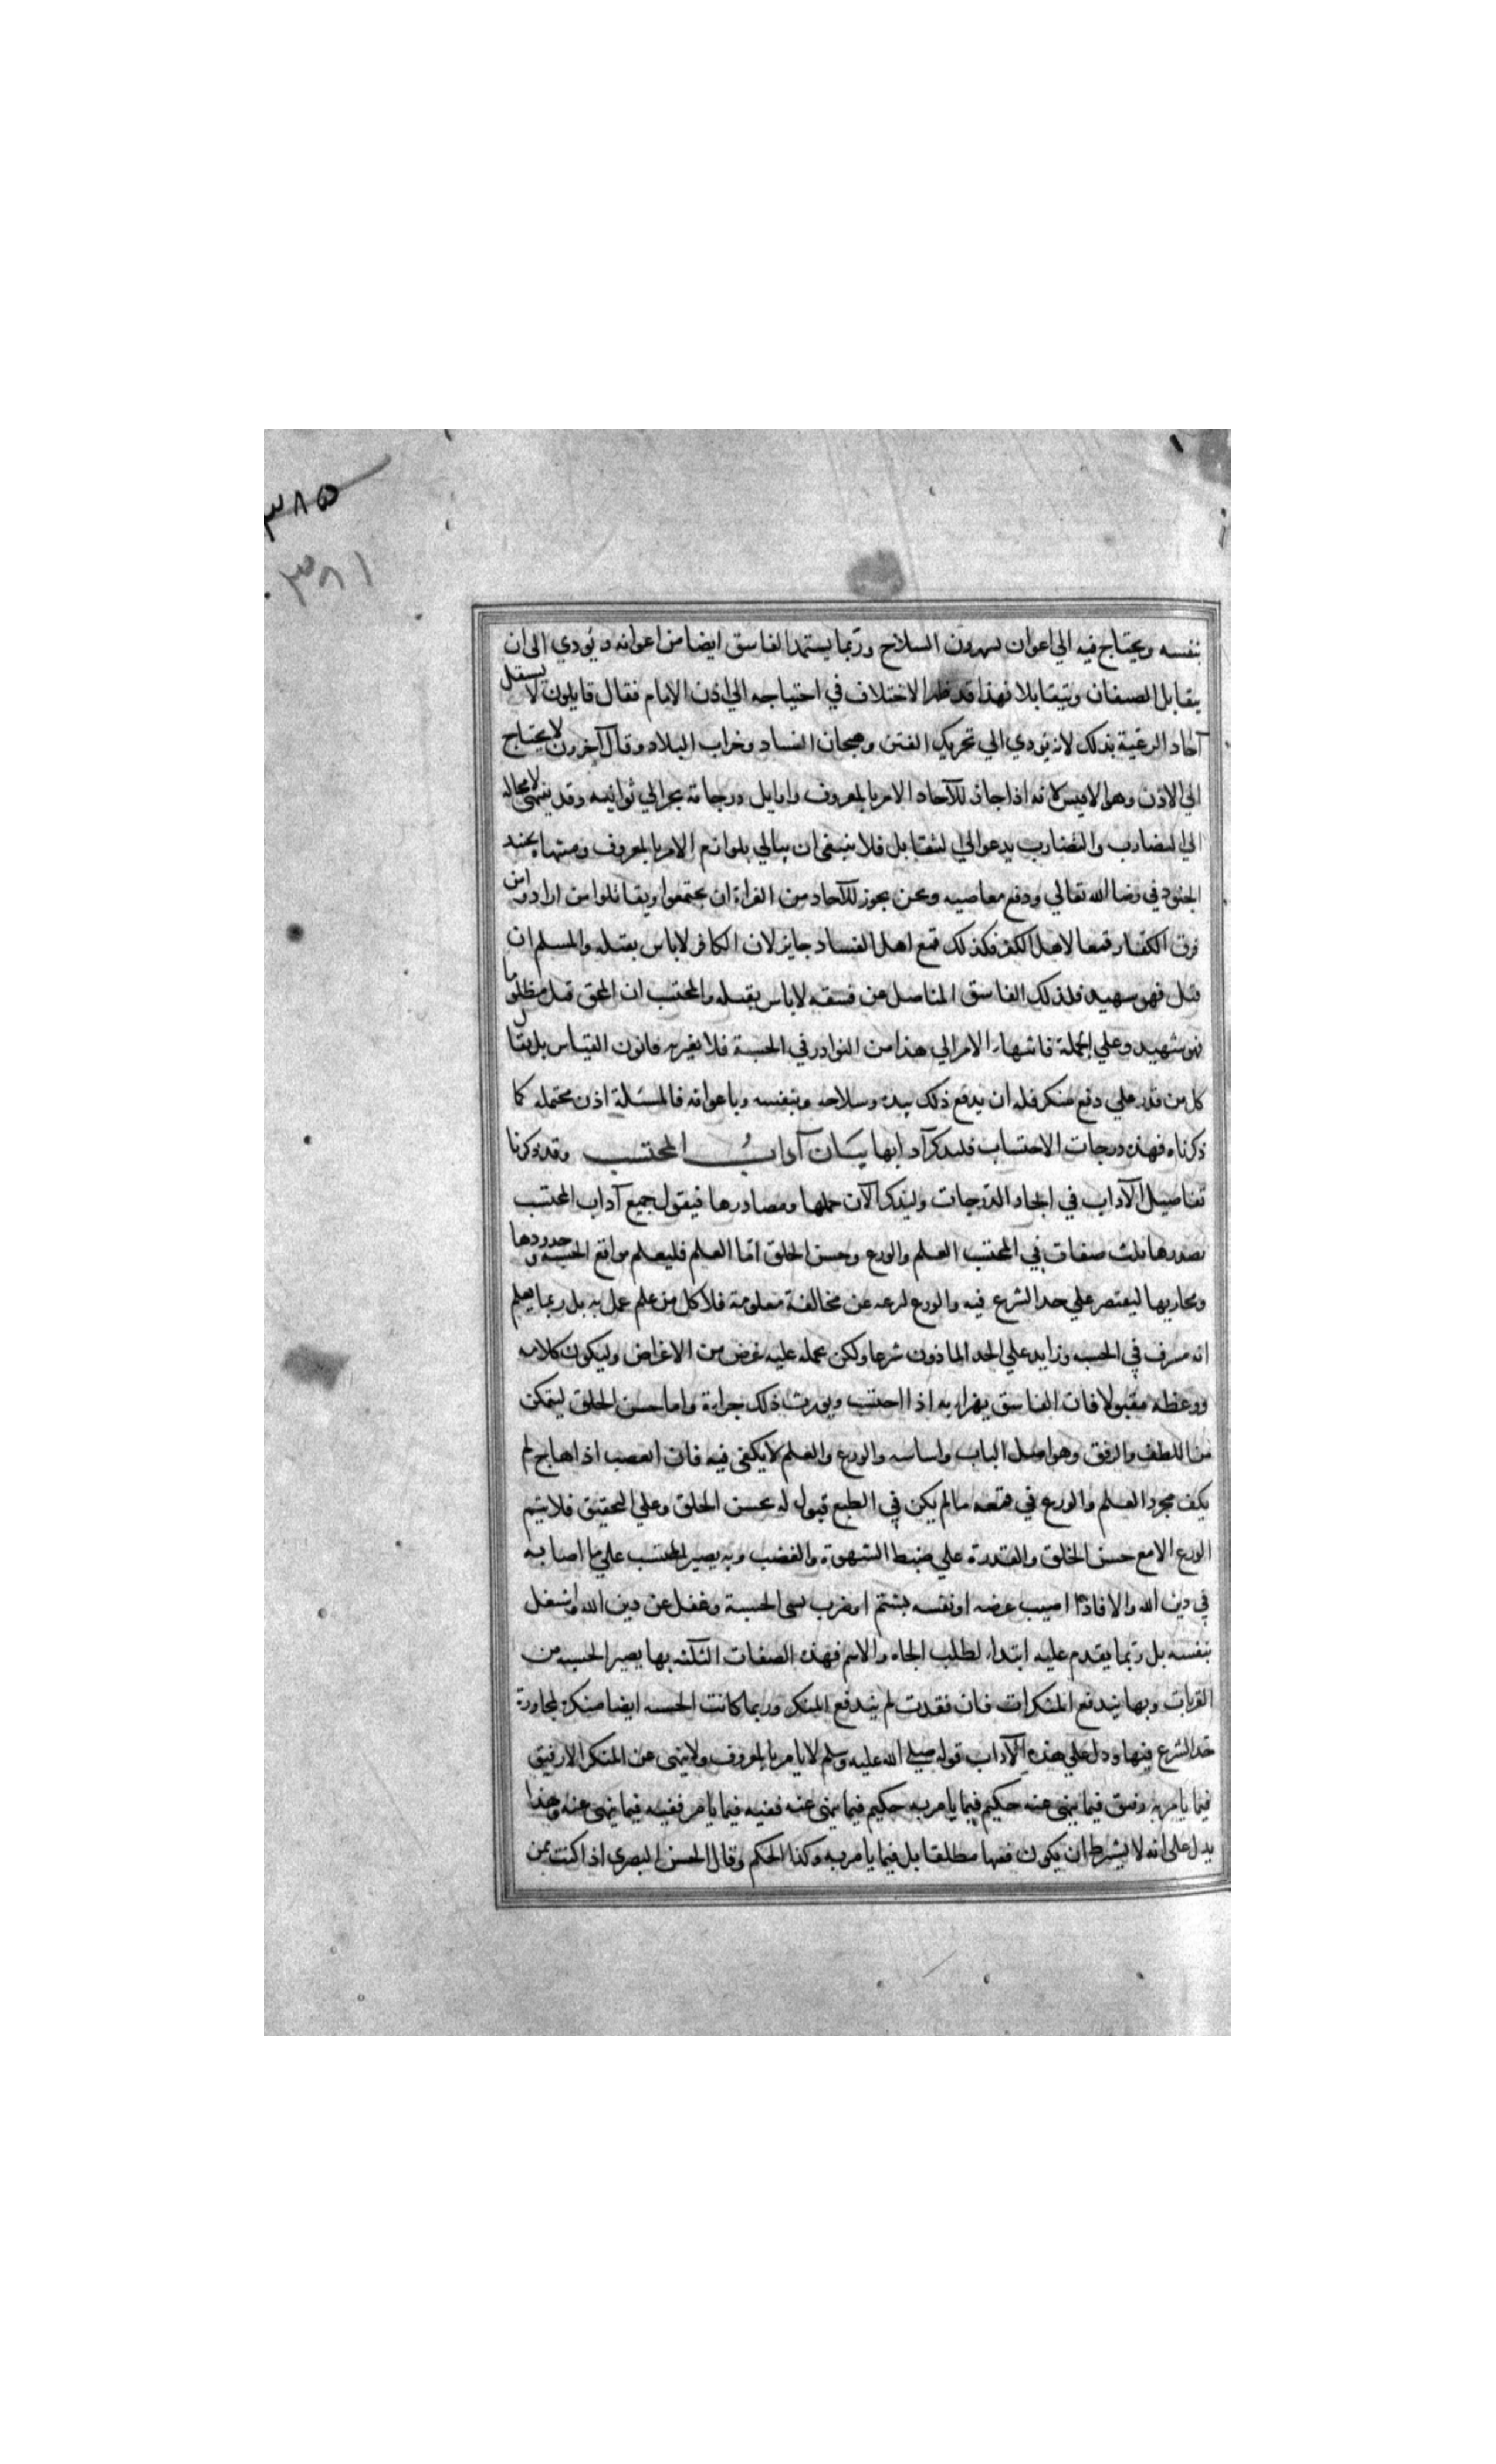 ٣٨٥
٣٨١
بنفسه ويحتاج فيه الي اعوان يشهرون السلاح وربما يستمد الفاسق ايضا من اعوانه ويؤدي الى ان
يقابل الصفان ويتقابلا فهذا قد ظهر الاختلاف في احتياجه الي اذن الامام فقال قايلون لا يستقل
آحاد الرعية بذلك لانه يؤدي الي تحريك الفتن وهيجان الفساد وخراب البلاد وقال آخرون لا يحتاج
الي الاذن وهو الاقيس لانه اذا جاز للآحاد الامر بالمعروف واوايل درجاته يجر الي ثوانيه وقد ينتهي لا محالة
الي التضارب والتضارب يدعو الي التقابل فلا ينبغي ان يبالي بلوازم الامر بالمعروف ومنتهاه تجنيد
الجنود في رضا الله تعالي ودفع معاصيه ونحن نجوز للآحاد من الغزاة ان يجتمعوا ويقاتلوا من ارادوا من
فرق الكفار قمعا لاهل الكفر فكذلك قمع اهل الفساد جايز لان الكافر لا باس بقتله والمسلم ان
قتل فهو شهيد فلذلك الفاسق المناضل عن فسقه لا باس بقتله والمحتسب ان المحق قتل مظلوما
فهو شهيد وعلي الجملة فانتهاء الامر الي هذا من النوادر في الحسبة فلا يغير به قانون القياس بل يقال
كل من قدر علي دفع منكر فله ان يدفع ذلك بيده وسلاحه وبنفسه وباعوانه فالمسئلة اذن محتمله كما
ذكرناه فهذه درجات الاحتساب فليذكر آدابها بيان آداب المحتسب وقد ذكرنا
تفاصيل الآداب في آحاد الدرجات وليذكر الآن جملها ومصادرها فيقول جميع آداب المحتسب
تصدرها ثلث صفات في المحتسب العلم والورع وحسن الخلق اما العلم فليعلم مواقع الحسبة وحدودها
ومجاريها ليقتصر علي حد الشرع فيه والورع لرعه عن مخالفة معلومة فلا كل من علم عمل به بل ربما يعلم
انه مسرف في الحسبه وزايد علي الحد الماذون شرعا ولكن يحمله عليه غرض من الاغراض وليكون كلامه
ووعظه مقبولا فان الفاسق يهزاء به اذا احتسب ويورث ذلك جراءة واما حسن الخلق ليتمكن
من اللطف والرفق وهو اصل الباب واساسه والورع والعلم لا يكفي فيه فان الغضب اذا هاج لم
يكف مجرد العلم والورع في قمعه مالم يكن في الطبع قبول له بحسن الخلق وعلي التحقيق فلا يتم
الورع الا مع حسن الخلق والقدرة علي ضبط الشهوة والغضب وبه يصير المحتسب علي ما اصابه
في دين الله والا فاذا اصيب عرضه او نفسه بشتم او ضرب نسي الحسبة وغفل عن دين الله واشتغل
بنفسه بل ربما يقدم عليه ابتداء لطلب الجاه والاسم فهذه الصفات الثلثه بها يصير الحسبه من
القربات وبها يندفع المنكرات فان فقدت لم يندفع المنكر وربما كانت الحسبه ايضا منكرة لمجاوزة
حد الشرع فيها ودل علي هذه الآداب قوله صلي الله عليه وسلم لا يامر بالمعروف ولا ينهي عن المنكر الا رفيق
فيما يامر به رفيق فيما ينهي عنه حكيم فيما يامر به حكيم فيما ينهي عنه فقيه فيما يامر فقيه فيما ينهي عنه وهذا
يدل علي انه لا يشترط ان يكون فقيها مطلقا بل فيما يامر به وكذا الحكم وقال الحسن البصري اذا كنت ممن